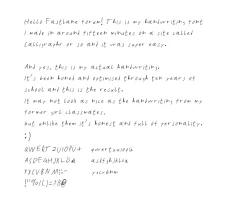 Hello Fastlane forum! This is my handwriting font
I made in around fifteen minutes on a site called
Calligraphr or so and it was super easy.
And yes, this is my actual handwriting.
It's been honed and optimised through ten years of
school and this is the result.
It may not look as nice as the handwriting from my
former girl classmates,
but unlike them it's honest and full of personality.
:)
QWERTZUIOPÜ+ qwertzuiopü
ASDFGHJKLÖÄ asdfghjklöä
YXCVBNM;:- yxcvbnm